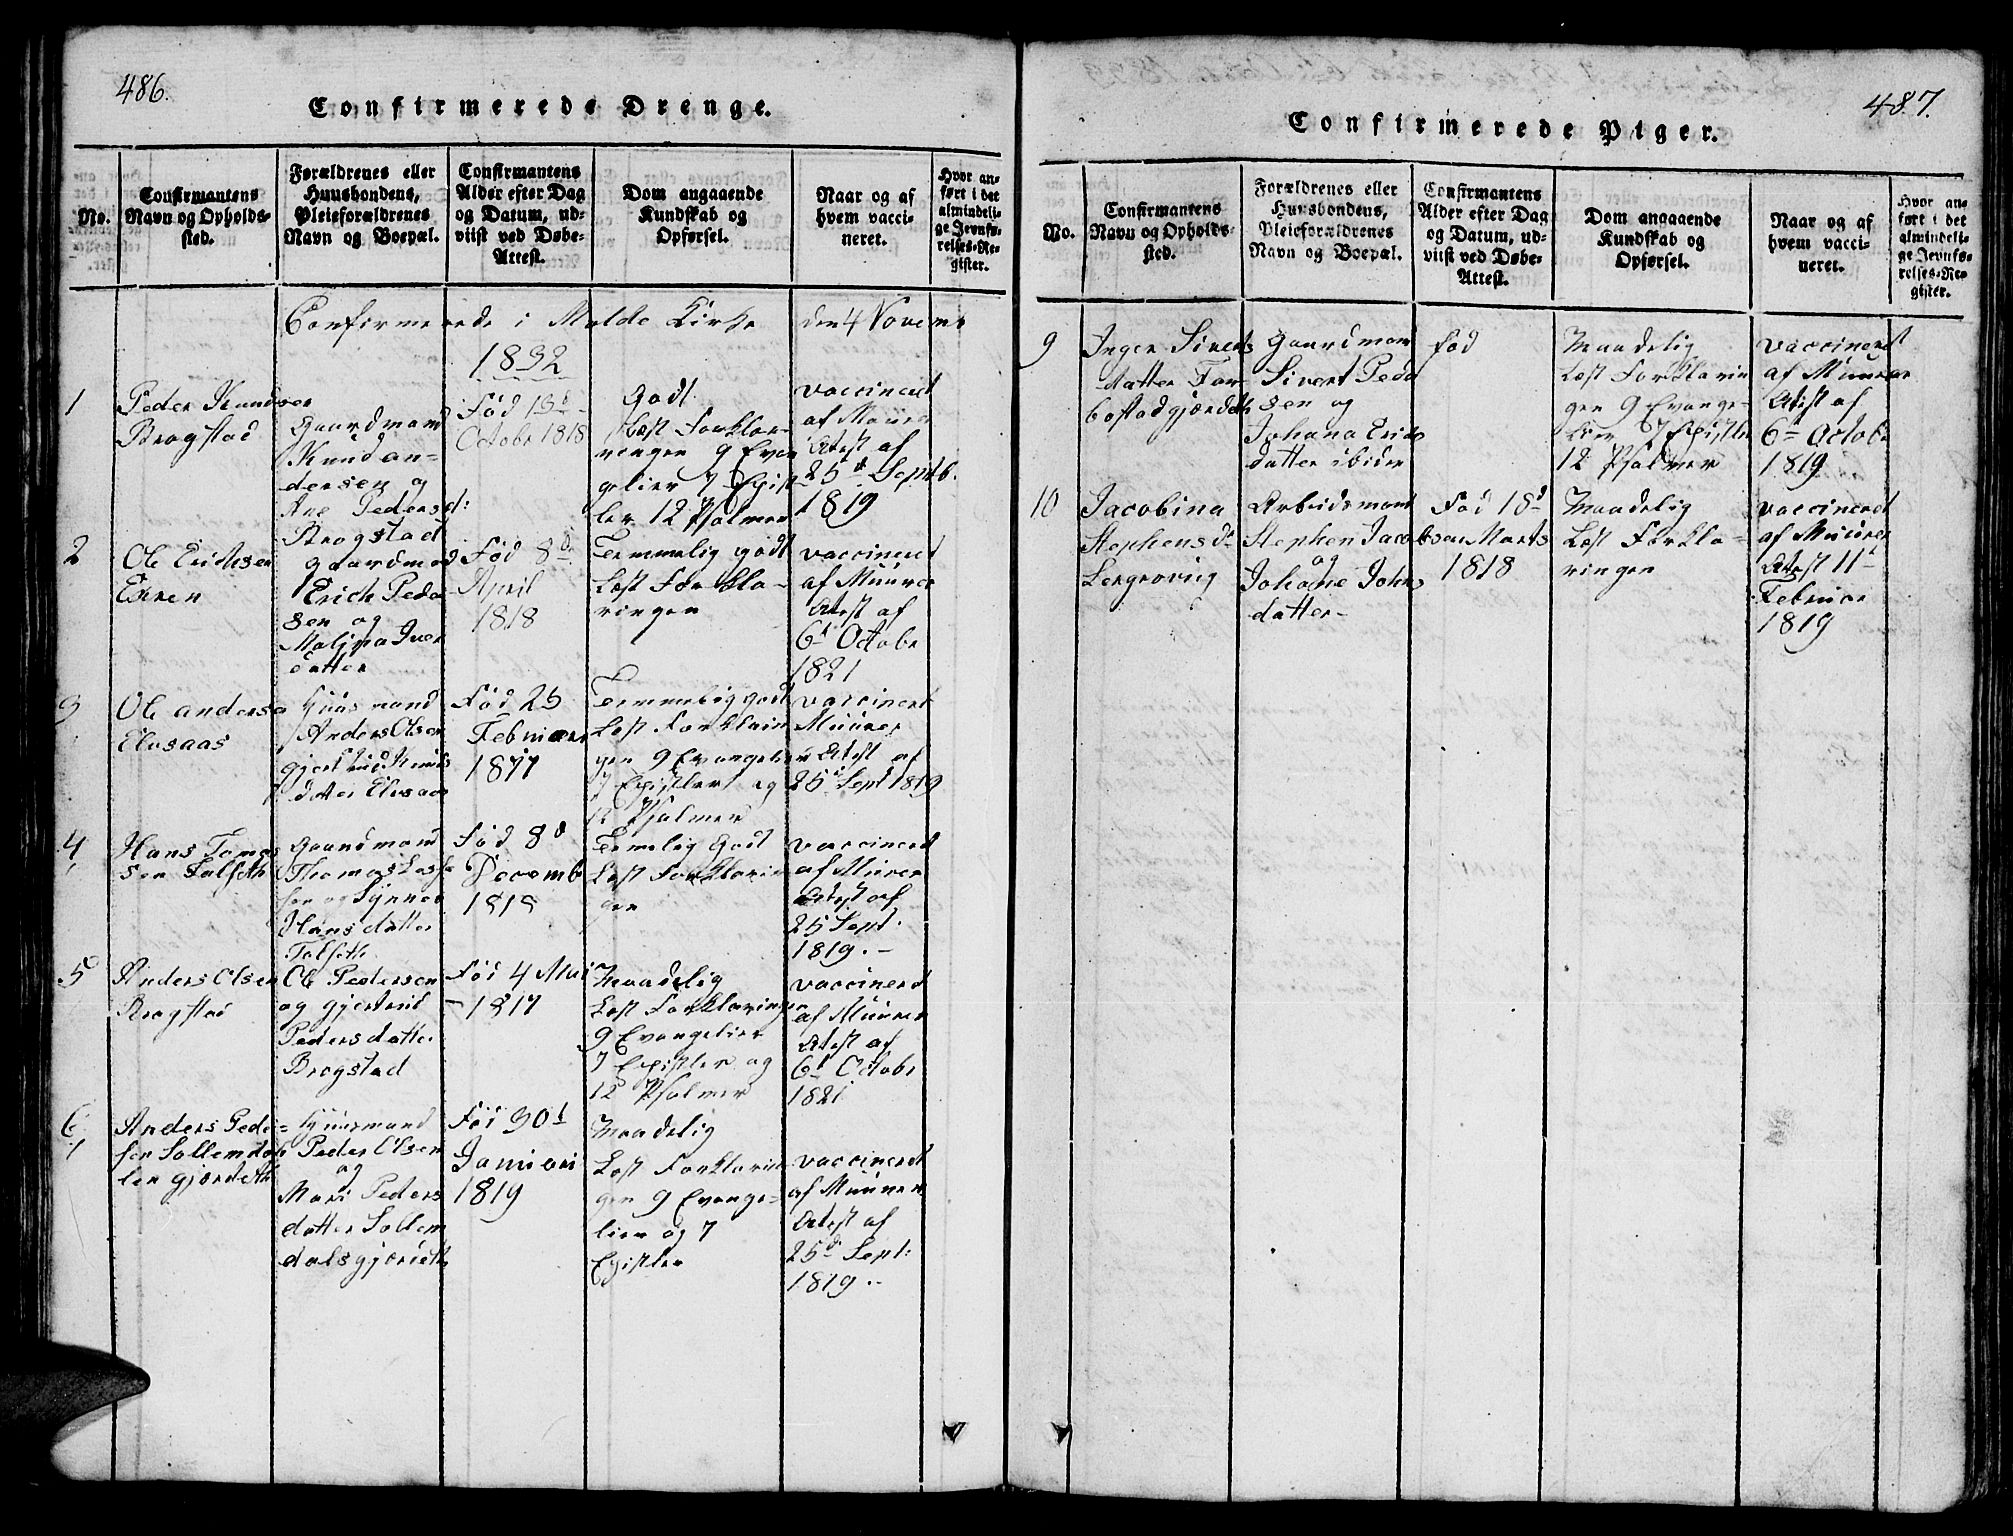 486.
Confirmerede Drenge.
No.
Confirmantens
Navn og Opholds-
sted.
Forældrenes eller
Huusbondens,
Pleieforældrenes
Navn og Boepæl.
Confirmantens
Alder efter Dag
og Datum, ud-
viist ved Døbe-
Attest.
Dom angaaende
Kundskab og
Opførsel.
Naar og af
hvem vacci-
neret.
Hvor an-
ført i det
almindeli-
ge Jevnfø-
relses-Re-
gister.
Confirmerede i Molde Kirke den 4 Novemr
1832
1
Peder Knudsen
Brogstad
Gaardmand
Knud an-
dersen og
Ane Pedersd:
Brogstad
Fød 13d
Octobr 1818
Godt
Læst Forkla-
ringen 9 Evan
gelier 7 Epist
ler 12 Psalmer
vaccineret
af Muurer
Atest af
25d Septb.
1819
2
Ole Erichsen
Eren
gaardmand
Erich Peder
sen og
Malena Iver
datter
Fød 8d
April
1818
Temmelig godt
Læst Forkla-
ringen
vaccineret
af Muurer
Atest af
6d Octobr
1821
3
Ole anders
Elvsaas
Huusmand
Anders Olsen
gjertrud Knuds
datter Elvsaas
Fød 23
Februær
1817
Temmelig godt
Læst Forklarin
gen 9 Evangelier
7 Epistler og
12 Psalmer
vaccineret
Muurer
Atest af
25d Sept 1819
4
Hans Tomas
sen Talseth
gaardmand
Thomas Lasse
sen og Synnev
Hansdatter
Talseth
Fød 8d
Decemb
1818
Temelig Godt
Læst Forklarin
gen
vaccineret
af Muurer
Atest af
25 Sept.
1819.-
5
Anders Olsen
Brogstad
Ole Pedersen
og gjertrud
Pedersdatter
Brogstad
Fød 4 Mai
1817
Maadelig
Læst Forklaringen
9 Evangelier
7 Epistler og
12 Psalmer
vaccineret
af Muurer
Atest af
6d Octobr
1821
6
Anders Peder-
sen Sollemda
len gjerdeth
Huusmand
Peder Olsen
og
Mari Peders
datter Sollem
dalsgjerdeth
Fød 30d
Januari
1819
Maadelig
Læst Forklarin
gen 9 Evange-
lier og 7
Epistler
vaccineret
af Muurer
Atest af
25d Sept:
1819.-
487.
Confirmerede Piger.
No.
Confirmantens
Navn og Opholds-
sted.
Forældrenes eller
Huusbondens,
Pleieforældrenes
Navn og Boepæl.
Confirmantens
Alder efter Dag
og Datum, ud-
viist ved Døbe-
Attest.
Dom angaaende
Kundskab og
Opførsel.
Naar og af
hvem vacci-
neret.
Hvor an-
ført i det
almindeli-
ge Jevnfø-
relses-Re-
gister.
9
Inger Siverts
datter Tor-
bostadgjærdeth
Gaardman
Sivert Peder
sen og
Johana Erics
datter ibiden
Fød
Maadelig
Læst Forklarin
gen 9 Evange-
lier 7 Epistler
12 Psalmer
vaccineret
af Muurer
Atest af
6te Octobr
1819
10
Jacobina
Stephensdr
Lergroving
Arbeidsmand
Stephen Jacobsen
og
Johane Johns
datter-
Fød 18d
Marts
1818
Maadelig
Læst Forkla-
ringen
vaccineret
af Muurer
Atest 11t
Februar
1819